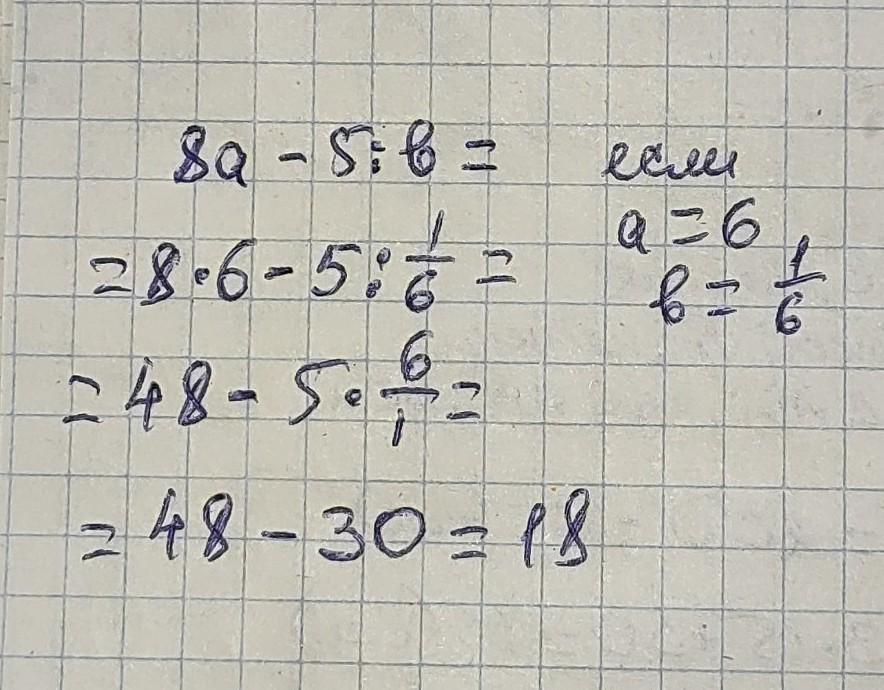 8a - 5 : b = если
a = 6
= 8 · 6 - 5 : 1/6 =
b = 1/6
= 48 - 5 · 6/1 =
= 48 - 30 = 18